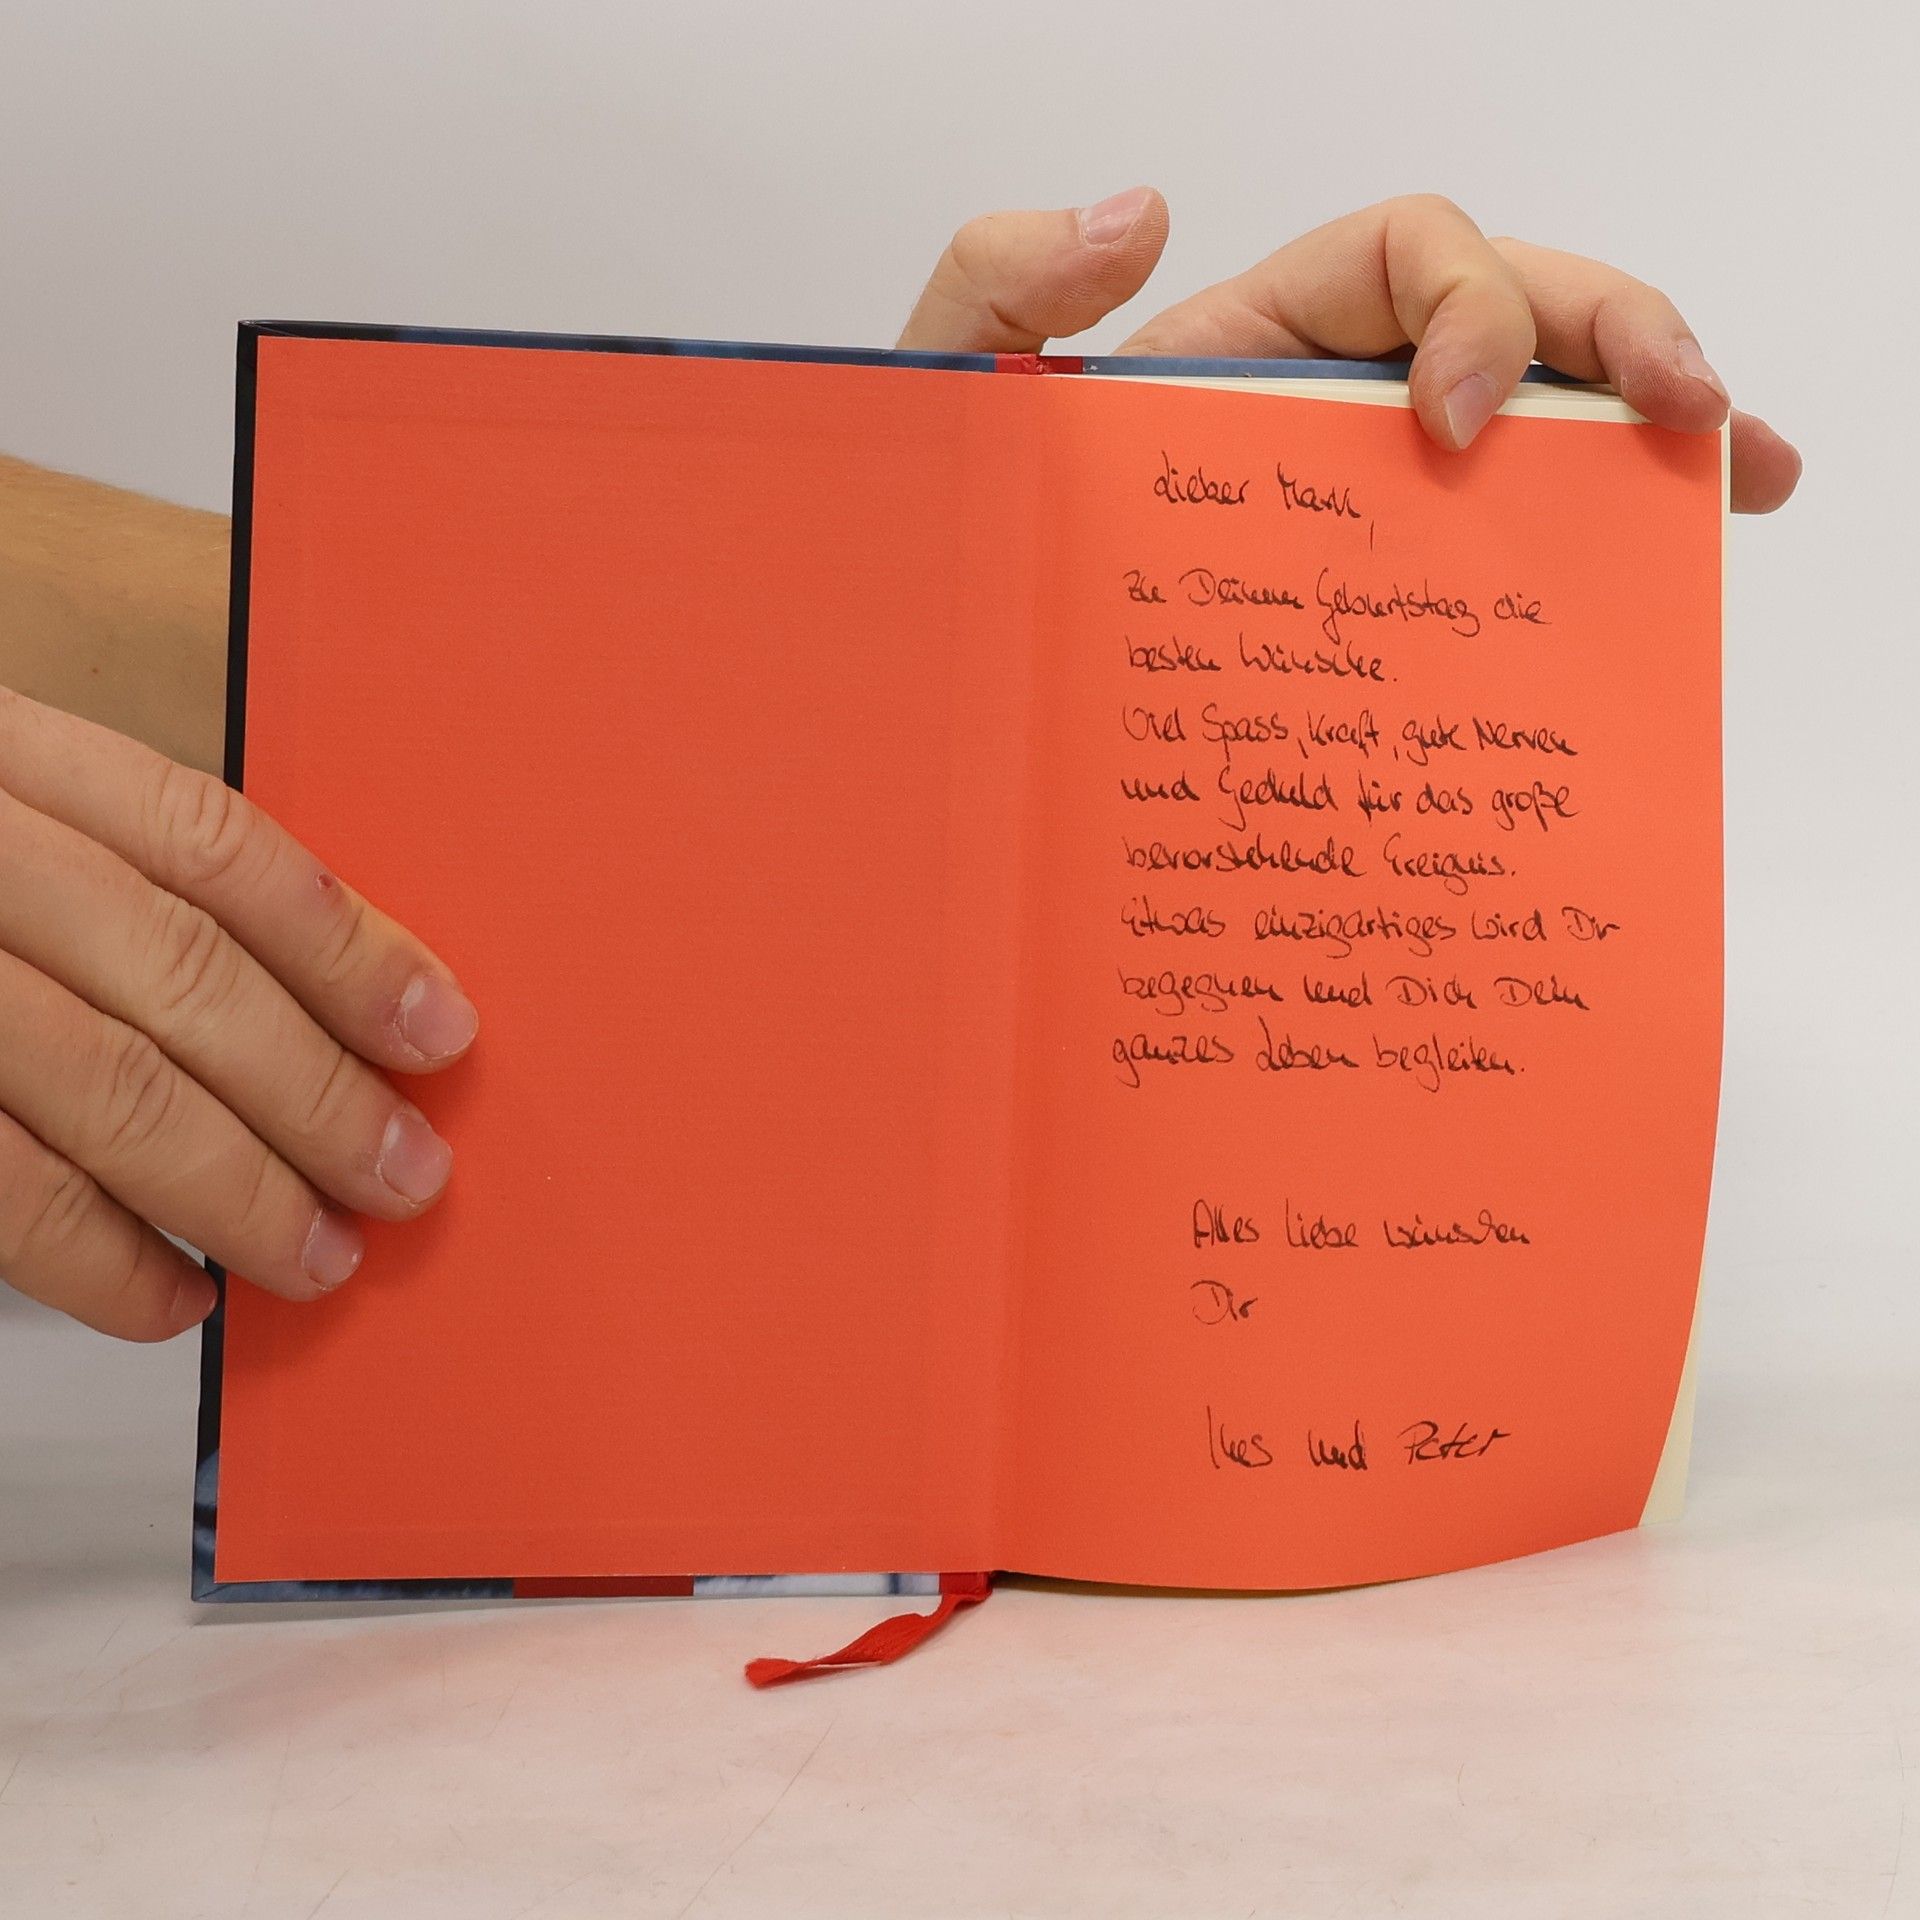 Lieber Mark,
zu Deinem Geburtstag die
besten Wünsche.
Viel Spass, Kraft, gute Nerven
und Geduld für das große
bevorstehende Ereignis.
Etwas einzigartiges wird Dir
begegnen und Dich Dein
ganzes Leben begleiten.
Alles Liebe wünschen
Dir
Ines und Peter